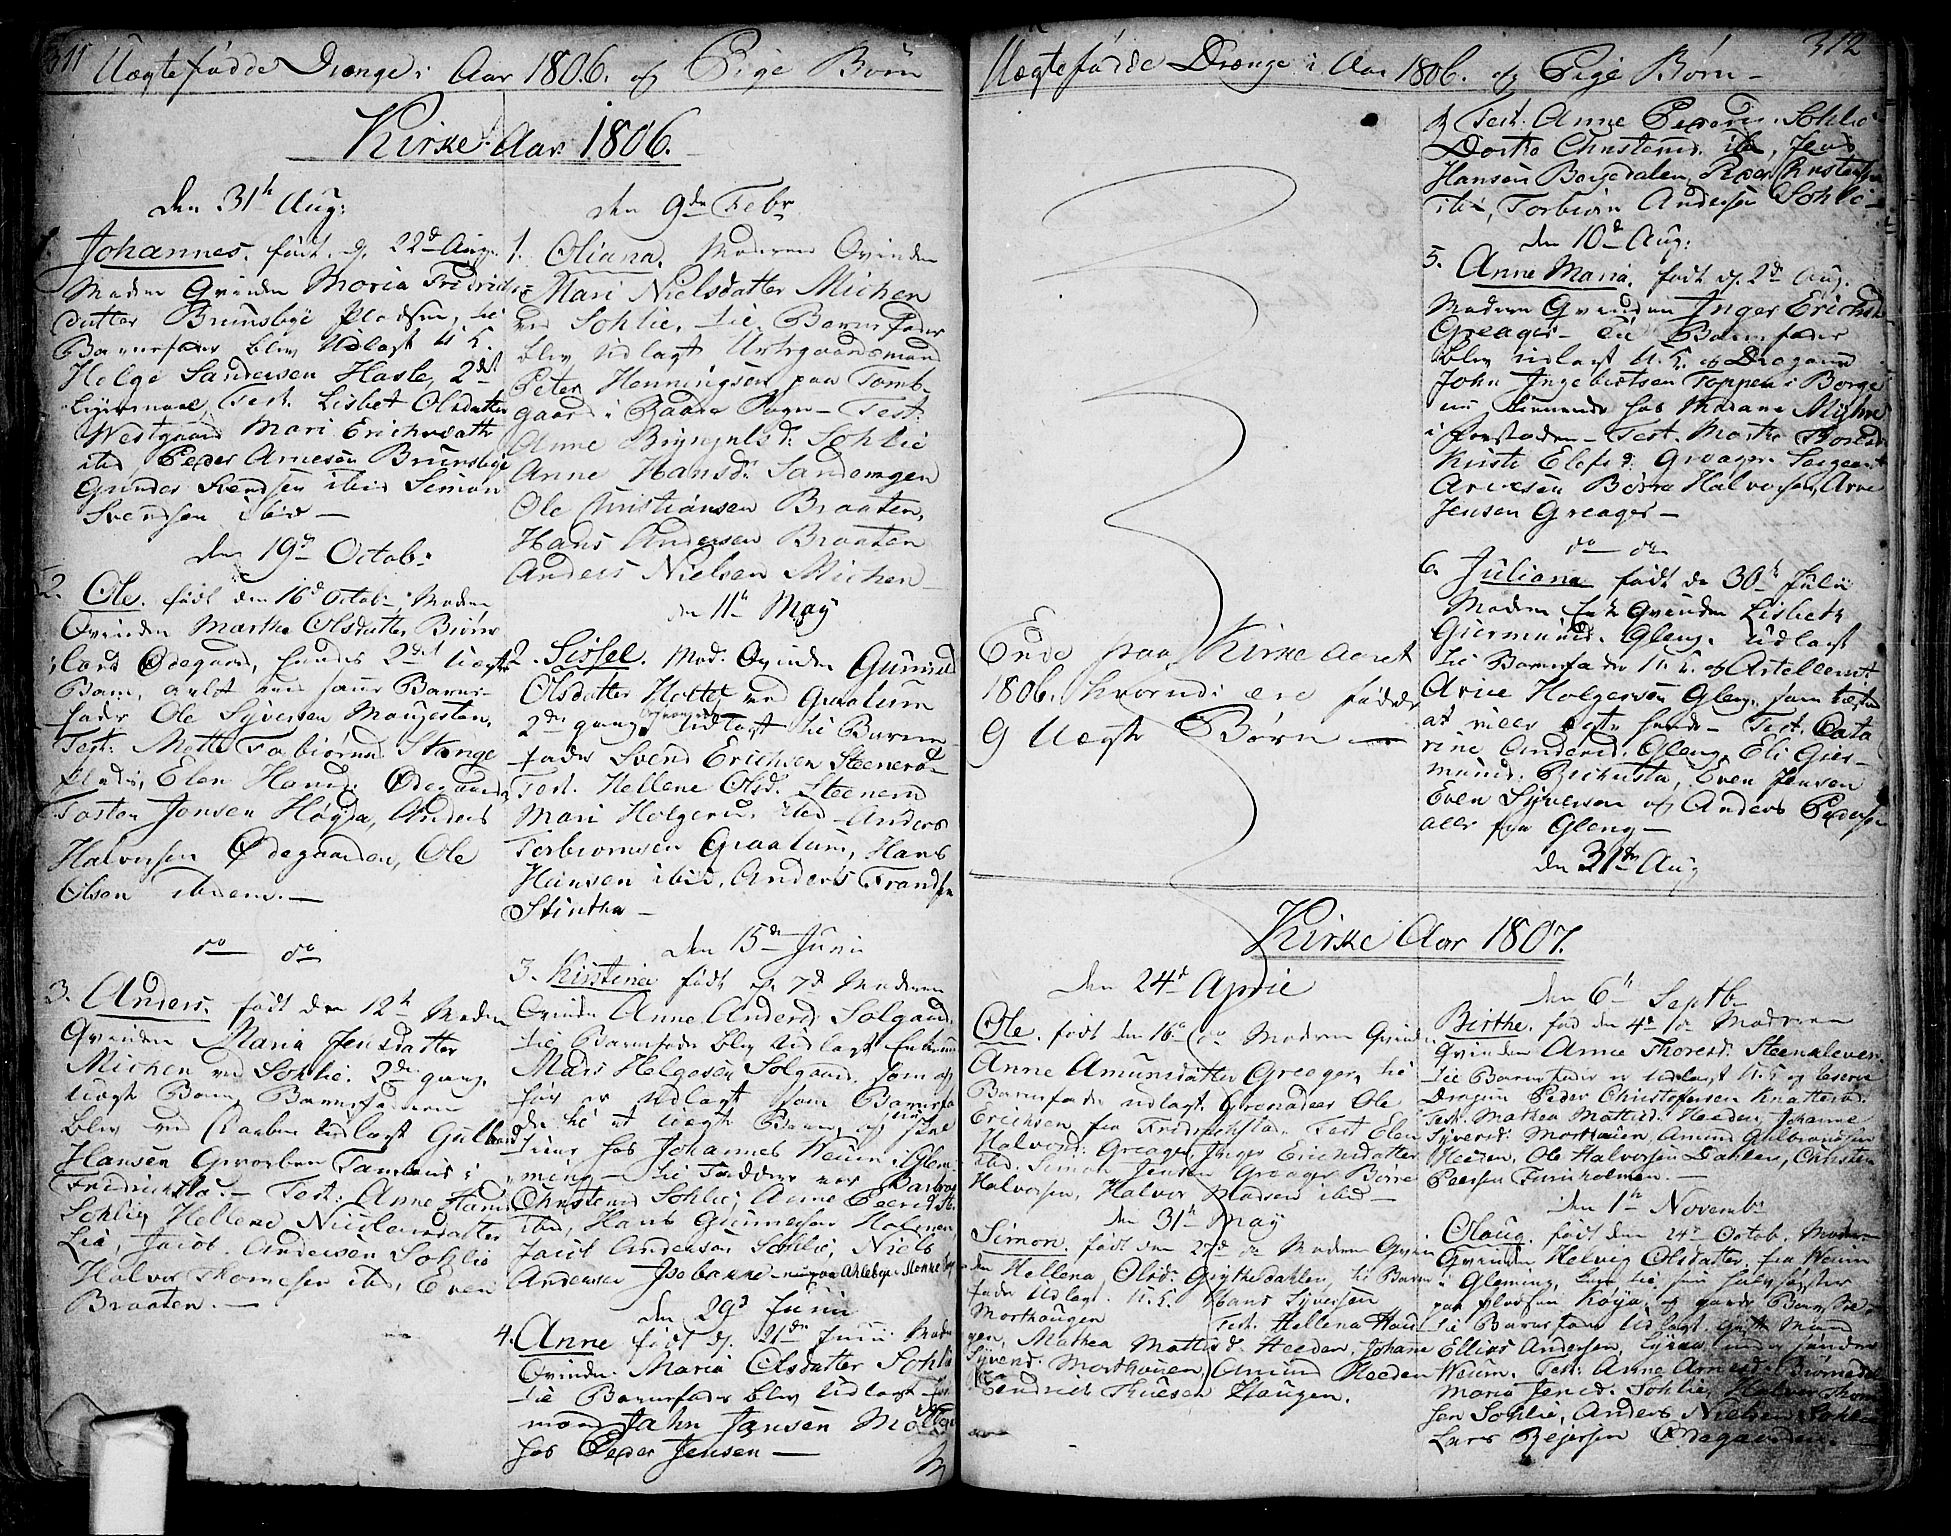 311 Uægtefødde Drænge i Aar 1806. og Pige Børn
Kirke Aar 1806.
den 31th Aug:
1. Johannes. født d. 22d Aug.
Moderen Qvinden Maria Fridrichs
datter Brunsbye pladsen, til
Barnefader blev Udlagt U. K.
Helge Sandersen Hasle, 2det
Leyermaal, Test. Lisbet Olsdatter
Westgaard Mari Erichsdatter
ibid Peder Arnesen Brunsbye
Gunder Svendsen ibid Simon
Svendsen ibid —
den 19de Octob:
2. Ole. født den 16d Octob: Moder
Qvinden Marthe Olsdatter Biørne
land Ødegaard, hendes 2det uægte
Barn, avlet med samme Barne-
fader Ole Syversen Maugesten,
Test: Mette Torbiørnsd. Stange
pladsen, Elen Hansd. Ødegaarden
Tosten Jonsen Høyda, Anders
Halvorsen Ødegaarden, Ole
Olsen ibidem. —
do do
3. Anders. født den 12th Moder
Qvinden Maria Jensdatter
Michen ved Sohlie. 2den gang
uægte Barn, Barnefaderen
blev ved Daaben Udlagt Gulbrand
Hansen Gvorben Tambour i
Fridrichstad. — Test: Anne Hansd.
Sohlie, Hellene Nicolaisdatter
Lie, Jacob Andersen Sohlie
Halvor Thomesen ibid, Even
Braaten. —
den 9de Febr
1. Oliana. Moderen Qvinden
Mari Nielsdatter Michen
ved Sohlie, til Barnefader
blev Udlagt
Peter Henningsen paa Tomb-
gaard i Raade Sogn — Test:
Anne Bryngelsd: Sohlie
Anne Hansd: Sandengen
Ole Christiansen Braaten,
Hans Andersen Braaten
Anders Nielsen Michen
den 11te May
2. Sissel. Mod: Qvinden Gunild
Olsdatter Hottet ved Graalum
2den gang Udlagt til Barne-
fader Svend Erichsen Steenerød
Test. Hellene Olsd. Steenerød
Mari Holgersd. ibid Anders
Torbiornsen Graalum, Hans
Hansen ibid, Anders Frandsen
Stintha —
den 15de Juni
3. Kirstine født d. 7d Moderen
Qvinden Anne Andersd Solgaard
til Barnefader blev Udlagt
Mads Helgesen Solgaard, som og
før er Udlagt som Barnefa
der til et uægte Barn, og
tiener hos Johannes Weum i Glem-
ming — til Faddere var Barbra
Christensd Sohlie, Anne Peersd
ibid, Hans Gunnersen Holmen,
Jacob Andersen Sohlie, Niels
Andersen Isebakke
den 29d Juni
4. Anne født d. 21de Juni Moder
Qvinden Maria Olsdatter Sohlie
til Barnefader blev Udlagt
mand Jahn Jansen
hos Peder Jensen —
312
Uægtefødde Drænge i Aar 1806. og Pige Børn —
Ende paa Kirke Aaret
1806. hvorudi ere fødde
9 Uægte Børn —
Test: Anne Pedersd. Sohlie
Dorthe Christensd. ibd, Jens
Hansen Borgedalen, Peder Christensen
ibid, Torbiørn Andersen Sohlie —
den 10de Aug:
5. Anne Maria. født d. 2d Aug.
Moderen Qvinden Inger Erichsd.
Greager — til Barnefader
blev udlagt U. K. og Dragoun
John Ingebretsen Toppen i Borge
nu tienende hos Madame Myhre
i forstaden — Test. Marthe
Kirsti Elefsd. Greager. Sergeant
Arnesen Børre Halvorsen, Arne
Jensen Greager —
do do
6. Juliana født den 30th Julii
Moder Qvinden Lisbeth
Giermunds. Gleng. Udlagt
til Barnefader U. K. og Artellerist
Arne Holgersen Gleng, som
at ville ægte hende — Test. Cata
rine Andersd. Gleng, Eli Gier-
munds. Bichusta, Even Jensen
Even Syversen og Anders Pedersen
alle fra Gleng —
den 31te Aug
Kirke Aar 1807.
den 24d April
Ole. født den 16d do Moderen Qvinden
Anne Amundsdatter Greager, til
Barnefader udlagt Grenadeer Ole
Erichsen fra Fredrichstad. Test Elen
Halvorsd: Greager, Inger Erichsdatter
ibid. Simon Jensen Greager Børre
Halvorsen, Halvor Madsen ibid —
den 31th May
Simon. født den do Moderen Qvin
den Hellena Olsd. Grythesdahlen, til Barne
fader Udlagt. U. K. Hans Syversen
Morthougen Test. Hellena
Mathea Mattisd. Heeden, Johane
Syversd. Morthouen, Amund Heeden
Hendrich Haugen.
den 6th Septb
Birthe. fød den 4de do Moderen
Qvinden Anne Thoresd. Steenkleven
til Barnefader er Udlagt U. K og reserve
Dragon Peder Christofersen Knatterød.
Test. Mathea Mattisd. Heeden, Johanne
Syversd: Morthouen, Amund Gulbrandsen
Heeden, Ole Halvorsen Dahlen, Christen
Peersen Furuholmen. —
den 1th Novemb:
Olaug. født den 24d Octob. Moder
Qvinden Helvig Olsdatter, fra Weum
i Gleming,
paa pladsen Køya,
til Barnefader Udlagt gift Mand
Ellias Andersen,
Weum. Test: Anne Arnesd. Biørnedal
Maria Jensd. Sohlie, Halvor Thom
sen Sohlie, Anders Nielsen Sohlie
Lars Reiersen Ødegaarden. —